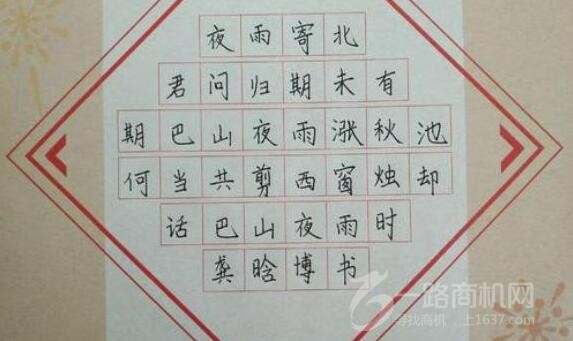 夜雨寄北
君问归期未有
期巴山夜雨涨秋池
何当共剪西窗烛却
话巴山夜雨时
龚晗博书
一路商机网
寻找商机，上1637.com